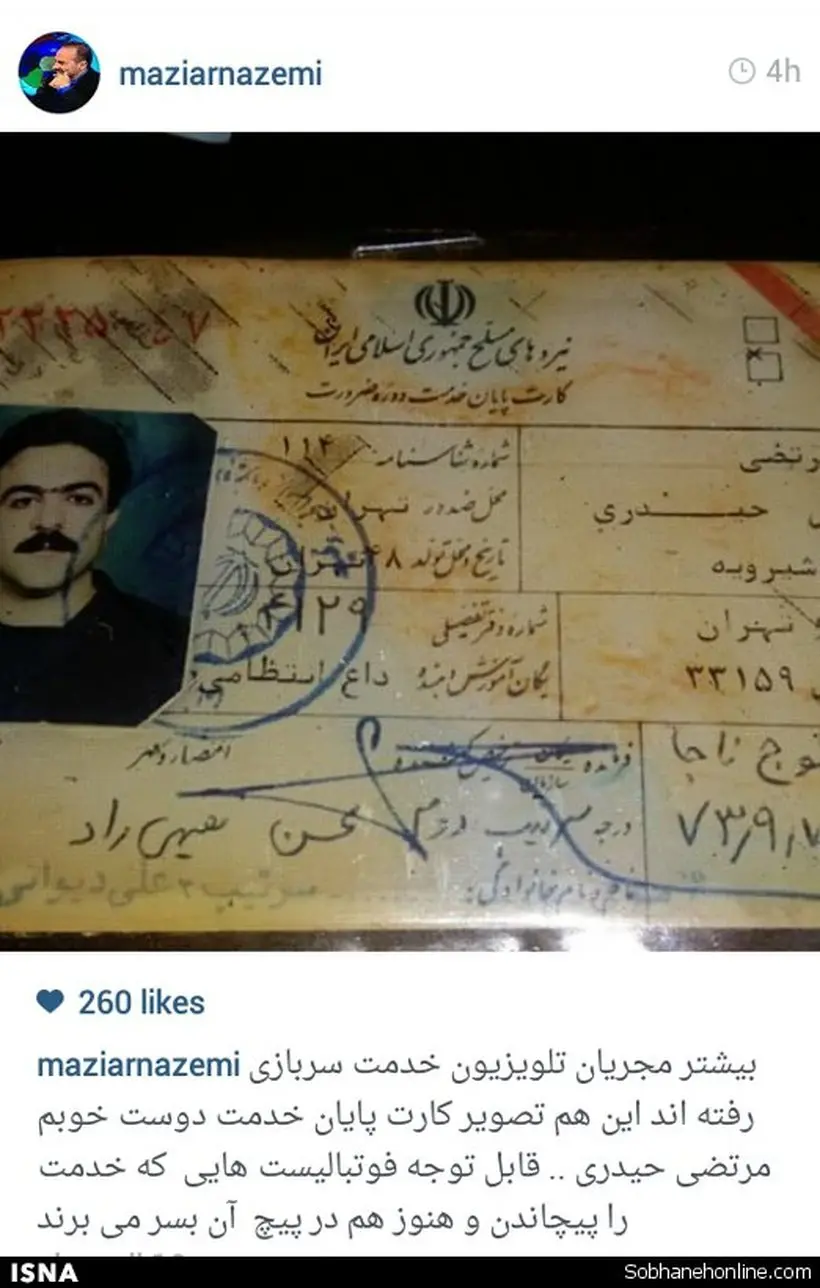 maziarnazemi
4h
نیروهای مسلح جمهوری اسلامی ایران
کارت پایان خدمت دوره ضرورت
رتضی
شماره شناسنامه ۱۱۴
حیدری
محل صدور تهران
شیرویه
تاریخ و محل تولد ۴۸ تهران
تهران
شماره دفتر تفصیلی ۴۱۲۹
۳۳۱۵۹
یگان آموزش دهنده داع انتظامی
ناجا
امضاء و مهر
۷۳/۹/۷
درجه
محسن
سرتیپ ۲ علی دیوانی
260 likes
maziarnazemi بیشتر مجریان تلویزیون خدمت سربازی
رفته اند این هم تصویر کارت پایان خدمت دوست خوبم
مرتضی حیدری .. قابل توجه فوتبالیست هایی که خدمت
را پیچاندن و هنوز هم در پیچ آن بسر می برند
ISNA
Sobhanehonline.com